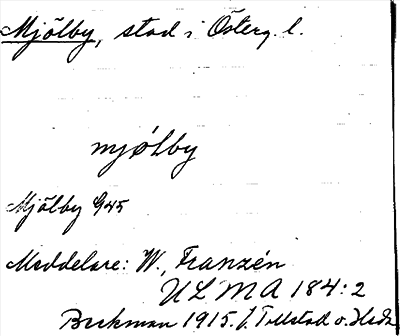 Mjölby, stad i Österg. l.
mjölby
Mjölby G45
Meddelare: W. Franzén
ULMA 184:2
Beckman 1915. f. Tillstad o. Hada